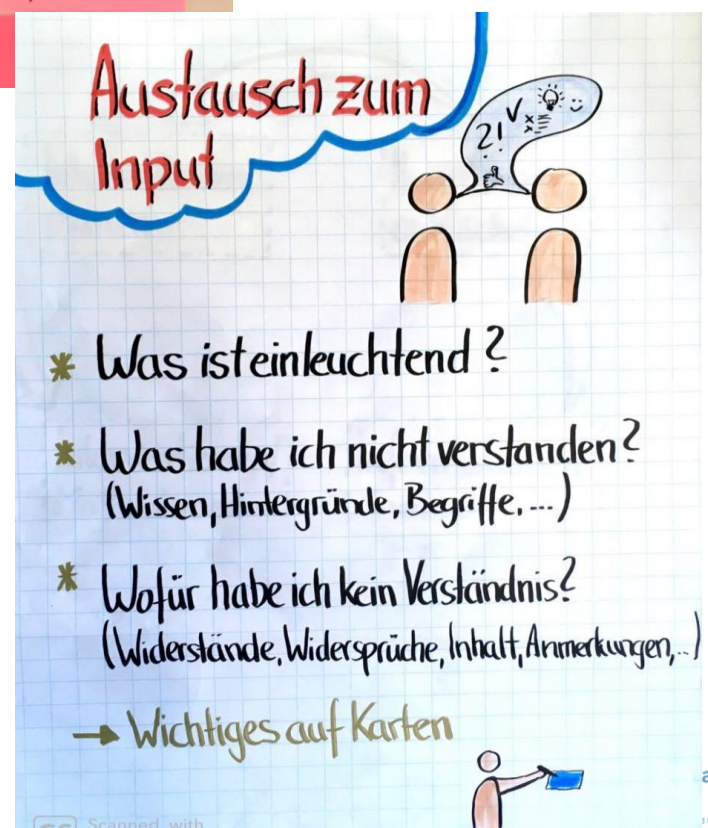 Austausch zum
Input
?! V
* Was ist einleuchtend?
* Was habe ich nicht verstanden?
(Wissen, Hintergründe, Begriffe, ...)
* Wofür habe ich kein Verständnis?
(Widerstände, Widersprüche, Inhalt, Anmerkungen, ..)
→ Wichtiges auf Karten
Scanned with